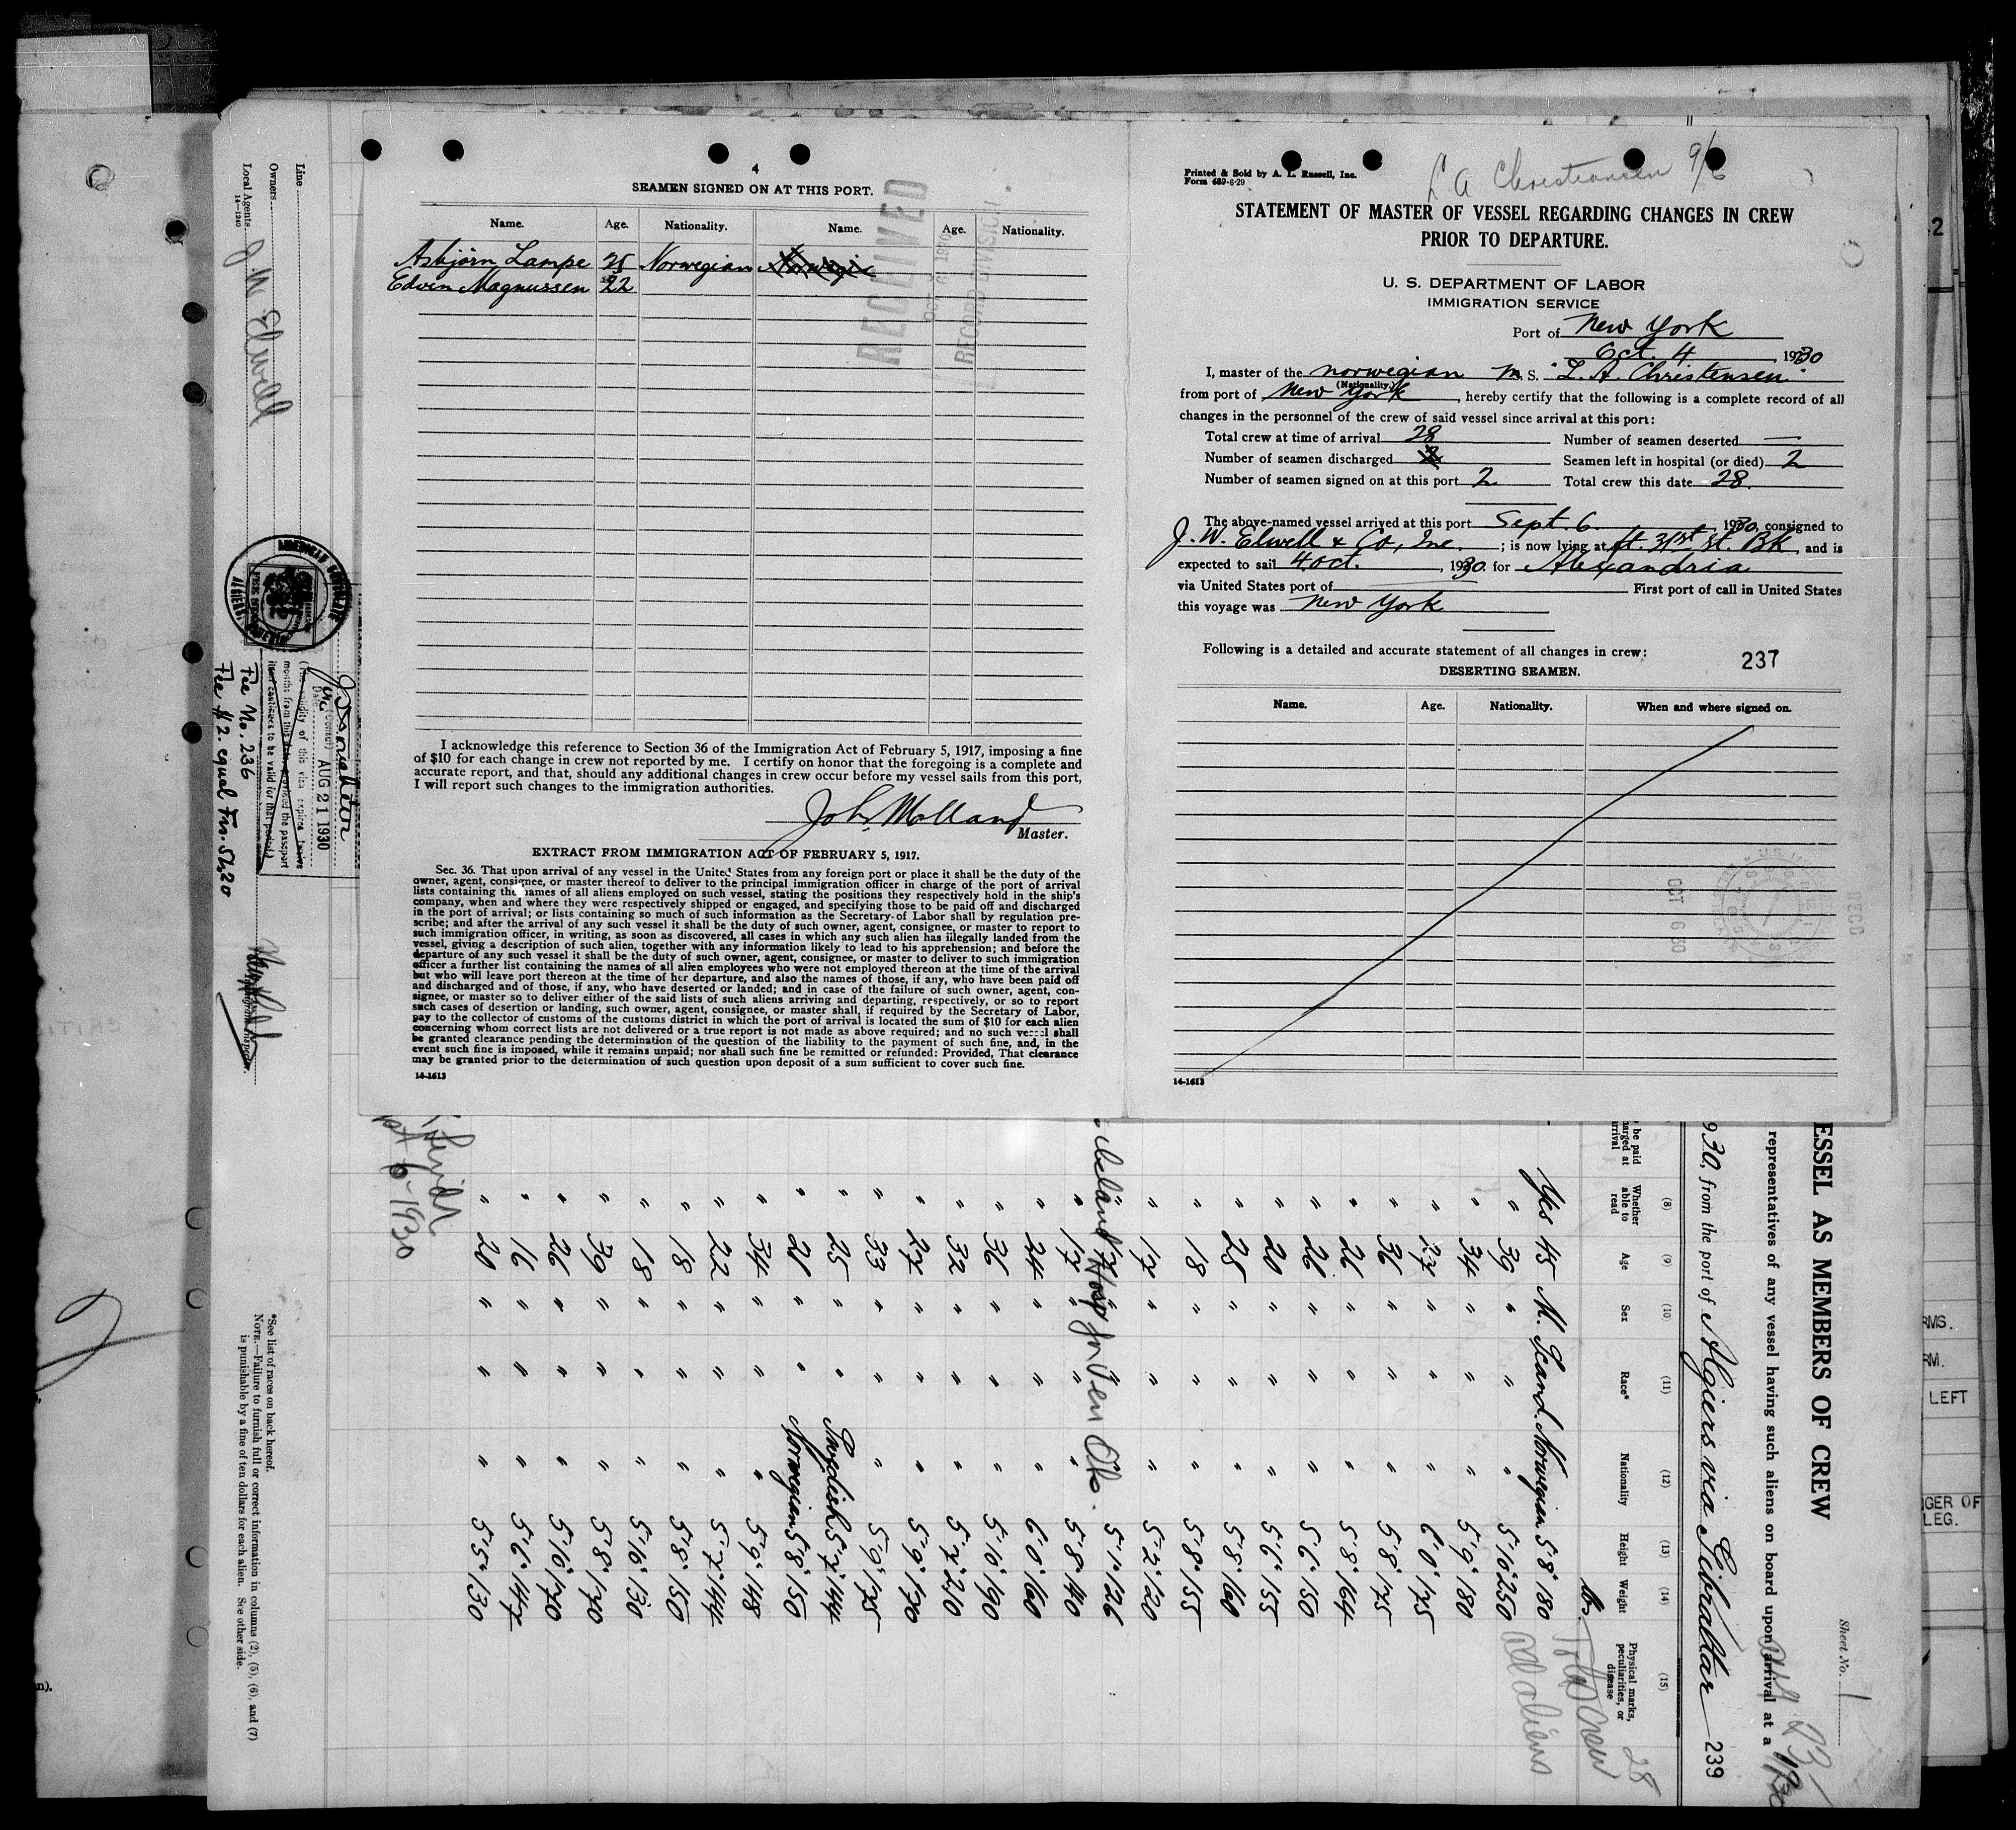 4
SEAMEN SIGNED ON AT THIS PORT.
Name. Age. Nationality. Name. Age. Nationality.
Asbjørn Lampe Norwegian
Edvin Magnussen 22
RECEIVED
RECORD DIVISION
I acknowledge this reference to Section 36 of the Immigration Act of February 5, 1917, imposing a fine
of $10 for each change in crew not reported by me. I certify on honor that the foregoing is a complete and
accurate report, and that, should any additional changes in crew occur before my vessel sails from this port,
I will report such changes to the immigration authorities.
Molland
Master.
EXTRACT FROM IMMIGRATION ACT OF FEBRUARY 5, 1917.
Sec. 36. That upon arrival of any vessel in the United States from any foreign port or place it shall be the duty of the
owner, agent, consignee, or master thereof to deliver to the principal immigration officer in charge of the port of arrival
lists containing the names of all aliens employed on such vessel, stating the positions they respectively hold in the ship's
company, when and where they were respectively shipped or engaged, and specifying those to be paid off and discharged
in the port of arrival; or lists containing so much of such information as the Secretary of Labor shall by regulation pre-
scribe; and after the arrival of any such vessel it shall be the duty of such owner, agent, consignee, or master to report to
such immigration officer, in writing, as soon as discovered, all cases in which any such alien has illegally landed from the
vessel, giving a description of such alien, together with any information likely to lead to his apprehension; and before the
departure of any such vessel it shall be the duty of such owner, agent, consignee, or master to deliver to such immigration
officer a further list containing the names of all alien employees who were not employed thereon at the time of the arrival
but who will leave port thereon at the time of her departure, and also the names of those, if any, who have been paid off
and discharged and of those, if any, who have deserted or landed; and in case of the failure of such owner, agent, con-
signee, or master so to deliver either of the said lists of such aliens arriving and departing, respectively, or so to report
such cases of desertion or landing, such owner, agent, consignee, or master shall, if required by the Secretary of Labor,
pay to the collector of customs of the customs district in which the port of arrival is located the sum of $10 for each alien
concerning whom correct lists are not delivered or a true report is not made as above required; and no such vessel shall
be granted clearance pending the determination of the question of the liability to the payment of such fine, and, in the
event such fine is imposed, while it remains unpaid; nor shall such fine be remitted or refunded: Provided, That clearance
may be granted prior to the determination of such question upon deposit of a sum sufficient to cover such fine.
14-1613
Printed & Sold by A. L. Russell, Inc.
Form 689-6-29
L A Christensen 9/6
STATEMENT OF MASTER OF VESSEL REGARDING CHANGES IN CREW
PRIOR TO DEPARTURE.
U. S. DEPARTMENT OF LABOR
IMMIGRATION SERVICE
Port of New York
Oct. 4, 1930
I, master of the norwegian M. S. "L. A. Christensen"
(Nationality.)
from port of New York, hereby certify that the following is a complete record of all
changes in the personnel of the crew of said vessel since arrival at this port:
Total crew at time of arrival 28 Number of seamen deserted —
Number of seamen discharged Seamen left in hospital (or died) 2
Number of seamen signed on at this port 2 Total crew this date 28.
The above-named vessel arrived at this port Sept. 6, 1930, consigned to
J. W. Elwell & Co, Inc.; is now lying at ft. 31st st. Bk, and is
expected to sail 4 oct., 1930. for Alexandria
via United States port of First port of call in United States
this voyage was New York
Following is a detailed and accurate statement of all changes in crew: 237
DESERTING SEAMEN.
Name. Age. Nationality. When and where signed on.
OCT 6 30
RECD
14-1613
Line
Owners
Local Agents J W Elwell
14-1240
AUG 21 1930
Fee No. 236
Fee $2. equal Frs. 51,20
*See list of races on back hereof.
NOTE.—Failure to furnish full or correct information in columns (2), (5), (6), and (7)
is punishable by a fine of ten dollars for each alien. See other side.
Sheet No. 1
ESSEL AS MEMBERS OF CREW
representatives of any vessel having such aliens on board upon arrival at a
930, from the port of Algiers via Gibraltar 239
(8) (9) (10) (11) (12) (13) (14) (15)
Whether able to read Age Sex Race* Nationality Height Weight Physical marks, peculiarities, or disease
28
ad aliens
Yes 45 M. Scand. Norwegian 5 8" 180
" 39 " " " 5 10" 250
" 34 " " " 5 9" 180
" 27 " " " 6 0" 175
" 36 " " " 5 8" 175
" 26 " " " 5 8" 164
" 26 " " " 5 6" 150
" 20 " " " 5 6" 155
" 25 " " " 5 8" 160
" 18 " " " 5 8" 155
" 17 " " " 5 2" 120
5 1" 126
Hosp for Ven Obs.
" 17 " " " 5 8" 140
" 24 " " " 6 0" 160
" 36 " " " 5 10" 190
" 32 " " " 5 7" 210
" 27 " " " 5 9" 170
" 33 " " " 5 9" 175
" 25 " " Swedish 5 7" 144
" 21 " " Norwegian 5 8" 150
" 34 " " " 5 9" 148
" 22 " " " 5 7" 144
" 18 " " " 5 8" 150
" 18 " " " 5 10" 130
" 39 " " " 5 8" 170
" 26 " " " 5 10" 170
" 16 " " " 5 6" 147
" 20 " " " 5 5" 130
6-1930
LEFT